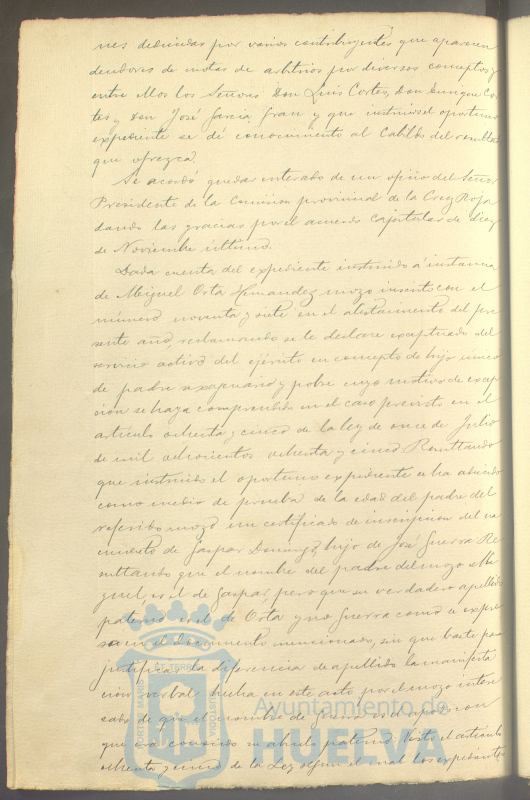 nes deducidas por varios contribuyentes que aparecen
deudores de cuotas de arbitrios por diversos conceptos y
entre ellos los Señores Don Luis Cortés, Don Enrique Cor
tés y Don José García Gran y que instruido el oportuno
expediente se dé conocimiento al Cabildo del resultado
que ofrezca.
Se acordó quedar enterado de un oficio del Señor
Presidente de la Comisión provincial de la Cruz Roja
dando las gracias por el acuerdo capitular de diez
de Noviembre último.
Dada cuenta del expediente instruido á instancia
de Miguel Orta Hernandez mozo inscrito con el
número noventa y siete en el alistamiento del pre
sente año, reclamando se le declare exceptuado del
servicio activo del ejército en concepto de hijo unico
de padre sexagenario y pobre cuyo motivo de excep
ción se haya comprendido en el caso previsto en el
artículo ochenta y cinco de la ley de once de Julio
de mil ochocientos ochenta y cinco Resultando
que instruido el oportuno expediente se ha aducido
como medio de prueba de la edad del padre del
referido mozo un certificado de inscripcion del na
cimiento de Gaspar Domingo, hijo de José Guerra Re
sultando que el nombre del padre del mozo Mi
guel es el de Gaspar, pero que su verdadero apellido
paterno es el de Orta y no Guerra como se expre
sa en el documento mencionado, sin que baste para
justificar la diferencia de apellido la manifesta
ción verbal hecha en este acto por el mozo intere
sado de que el nombre de Guerra es el apodo con
que era conocido su abuelo paterno. Visto el artículo
ochenta y cinco de la Ley segun el cual los expedientes
PORTUS MARIS ET TERRAE CUSTODIA
Ayuntamiento de
HUELVA